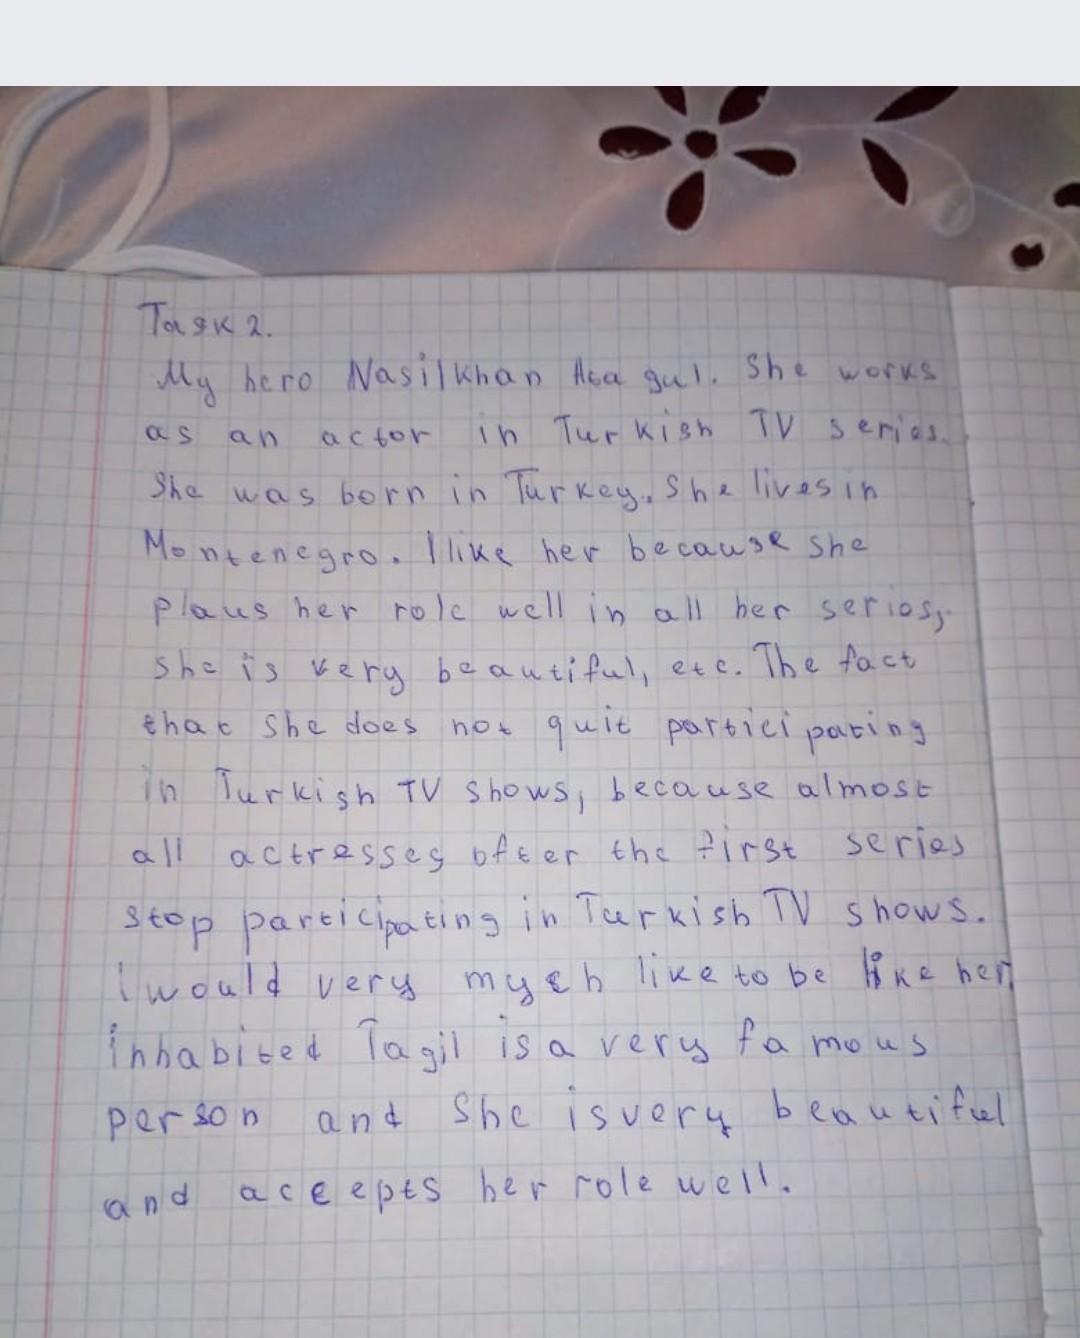 Task 2.
My hero Nasilkhan Asa gul. She works
as an actor in Turkish TV series.
She was born in Turkey. She lives in
Montenegro. I like her because she
plaus her role well in all her series,
she is very beautiful, etc. The fact
that she does not quit participating
in Turkish TV shows, because almost
all actresses ofter the first series
stop participating in Turkish TV shows.
I would very mych like to be like her
inhabited Tagil is a very famous
person and she is very beautiful
and accepts her role well.